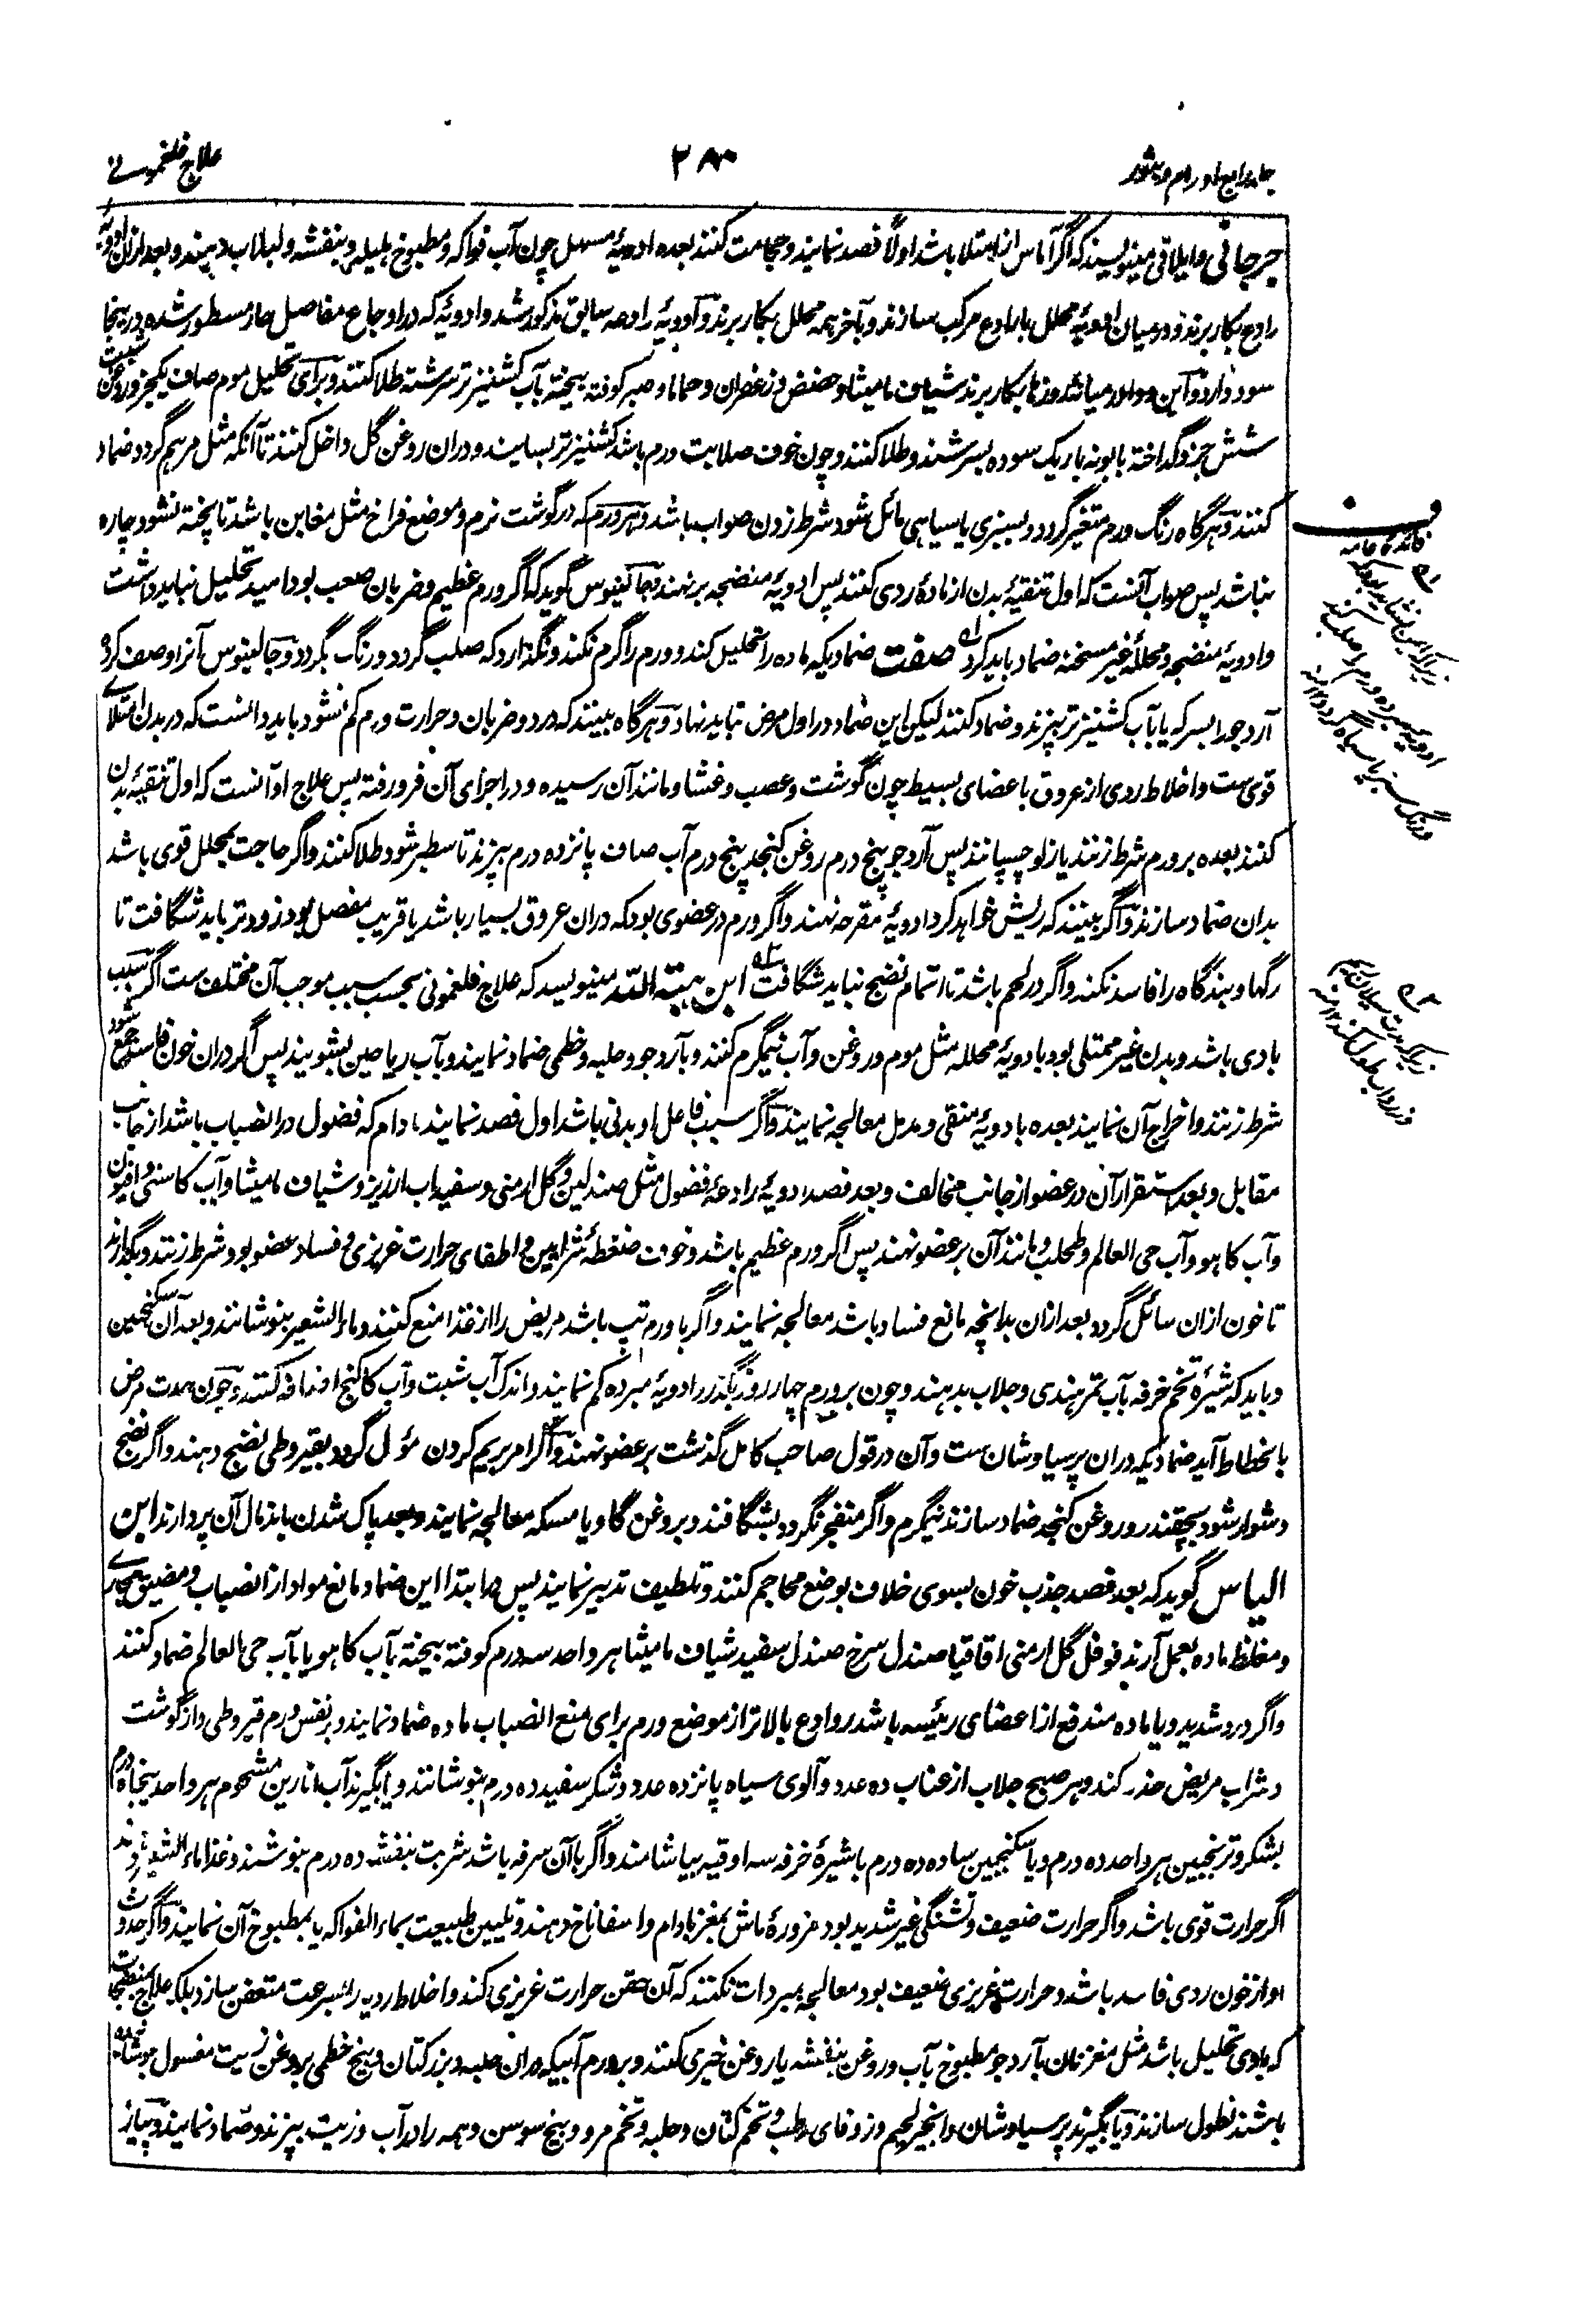 جلد رابع اورام و بثور
۲۸۰
علاج فلغمونی
جرجانی و ایلاقی مینویسند که اگر آماس از امتلا باشد اولاً فصد نمایند و حجامت کنند بعده ادویهٔ مسهل چون آب فواکه و مطبوخ هلیله و بنفشه و لبلاب دهند و بعد ازان ادویهٔ
رادع بکار برند و درمیان ادویهٔ محلل با رادع مرکب سازند و بآخر همه محلل بکار برند و ادویهٔ رادعه سابق مذکور شد و ادویهٔ که در اوجاع مفاصل حار مسطور شده درینجا
سود دارد و این دوا در میانه روزها بکار برند شیاف مامیثا و حضض و زعفران و حماما و صبر کوفته بیخته بآب کشنیز تر سرشته طلا کنند و برای تحلیل موم صاف یکجزو روغن شبت
شش جزو گداخته بابونه باریک سوده بسرشند و طلا کنند و چون خوف صلابت ورم باشد کشنیز تر بسایند و دران روغن گل داخل کنند تا آنکه مثل مرهم گردد ضماد
کنند و هرگاه رنگ ورم متغیر گردد و بسبزی یا سیاهی مائل شود شرط زدن صواب باشد و هر ورم که در گوشت نرم و موضع فراخ مثل مغابن باشد تا پخته نشود چاره
نباشد پس صواب آنست که اول تنقیهٔ بدن از مادهٔ ردی کنند پس ادویهٔ منضجه برنهند جالینوس گوید که اگر ورم عظیم و ضربان صعب بود امید تحلیل نباید داشت
و ادویهٔ منضجه و محللهٔ غیر مسخنه ضماد باید کرد صفت ضمادیکه ماده را تحلیل کند و ورم را گرم نکند و نگذارد که صلب گردد و رنگ بگردد و جالینوس آنرا وصف کرده
آرد جو را بسرکه یا بآب کشنیز تر بپزند و ضماد کنند لیکن این ضماد در اول مرض نباید نهاد و هرگاه بینند که درد و ضربان و حرارت ورم کم نشود باید دانست که در بدن امتلای
قوی ست و اخلاط ردی از عروق باعضای بسیط چون گوشت و عصب و غشا و مانند آن رسیده و در اجزای آن فرو رفته پس علاج او آنست که اول تنقیهٔ بدن
کنند بعده بر ورم شرط زنند یا زلو چسپانند پس آرد جو پنج درم روغن کنجد پنج درم آب صاف پانزده درم بپزند تا سطبر شود طلا کنند و اگر حاجت بمحلل قوی باشد
بدان ضماد سازند و اگر بینند که ریش خواهد کرد ادویهٔ مقرحه نهند و اگر ورم در عضوی بود که دران عروق بسیار باشد یا قریب مفصل بود زودتر باید شگافت تا
رگها و بندگاه را فاسد نکند و اگر در لحم باشد تا اتمام نضج نباید شگافت ابن هبة الله مینویسد که علاج فلغمونی بحسب سبب موجب آن مختلف ست اگر سبب
بادی باشد و بدن غیر ممتلی بود بادویهٔ محلله مثل موم و روغن و آب نیگرم کنند و بآرد جو و حلبه و خطمی ضماد نمایند و بآب ریاحین بشویند پس اگر دران خون فاسد جمع شود
شرط زنند و اخراج آن نمایند بعده بادویهٔ منقی و مدمل معالجه نمایند و اگر سبب فاعل او بدنی باشد اول فصد نمایند مادام که فضول در انصباب باشد از جانب
مقابل و بعد استقرار آن در عضو از جانب مخالف و بعد فصد ادویهٔ رادعهٔ فضول مثل صندلین و گل ارمنی و سفیداب ارزیز و شیاف مامیثا و آب کاسنی و افیون
و آب کاهو و آب حی العالم و طحلب و مانند آن بر عضو نهند پس اگر ورم عظیم باشد و خوف ضغطهٔ شرایین و اطفای حرارت غریزی و فساد عضو بود شرط زنند و بگذارند
تا خون ازان سائل گردد بعد ازان بدانچه مانع فساد باشد معالجه نمایند و اگر با ورم تپ باشد مریض را از غذا منع کنند و ماء الشعیر بنوشانند و بعد آن سکنجبین
و باید که شیرهٔ تخم خرفه بآب تمر هندی و جلاب بدهند و چون بر ورم چهار روز بگذرد ادویهٔ مبرده کم نمایند و اندک آب شبت و آب کاکنج اضافه کنند و چون مدت مرض
بانحطاط آید ضمادیکه دران پرسیاوشان ست و آن در قول صاحب کامل گذشت بر عضو نهند و اگر امر بریم کردن مؤل گردد بقیروطی نضج دهند و اگر نضج
دشوار شود بچقندر و روغن کنجد ضماد سازند نیگرم و اگر منفجر نگردد بشگافند و بروغن گاو یا مسکه معالجه نمایند و بعد پاک شدن باندمال آن پردازند ابن
الیاس گوید که بعد فصد جذب خون بسوی خلاف بوضع محاجم کنند و تلطیف تدبیر نمایند پس در ابتدا این ضماد مانع مواد از انصباب و مضیق مجاری
و مغلظ ماده بعمل آرند فوفل گل ارمنی اقاقیا صندل سرخ صندل سفید شیاف مامیثا هر واحد سه درم کوفته بیخته بآب کاهو یا بآب حی العالم ضماد کنند
و اگر درد شدید و یا ماده مندفع از اعضای رئیسه باشد بروادع بالاتر از موضع ورم برای منع انصباب ماده ضماد نمایند و بر نفس ورم قیروطی و از گوشت
و شراب مریض حذر کند و هر صبح جلاب از عناب ده عدد و آلوی سیاه پانزده عدد و شکر سفید ده درم بنوشانند و یا بگیرند آب انارین مشحوم هر واحد پنجاه درم
بشکر و ترنجبین هر واحد ده درم و یا سکنجبین ساده ده درم با شیرهٔ خرفه سه اوقیه بیاشامند و اگر باآن سرفه باشد شربت بنفشه ده درم بنوشند و غذا ماء الشعیر دهند
اگر حرارت قوی باشد و اگر حرارت ضعیف و تشنگی غیر شدید بود مزورهٔ ماش بمغز بادام و اسفاناخ دهند و تلیین طبیعت بماء الفواکه یا بمطبوخ آن نمایند و اگر حدوث
او از خون ردی فاسد باشد و حرارت غریزی ضعیف بود معالجه بمبردات نکنند که آن حقن حرارت غریزی کند و اخلاط ردیه را بسرعت متعفن سازد بلکه علاج بمنضجات
که بادی تحلیل باشد مثل مغز نان بآرد جو مطبوخ بآب و روغن بنفشه یا روغن خیری کنند و بر ورم آبیکه دران حلبه و بزر کتان و بیخ خطمی بروغن زیت مغسول جوشانیده
باشند نطول سازند و یا بگیرند پرسیاوشان و انجیر لحیم و زوفای رطب و تخم کتان و حلبه و تخم مرو و بیخ سوسن و همه را در آب و زیت بپزند و ضماد نمایند و پیاز
فائدهٔ عامه